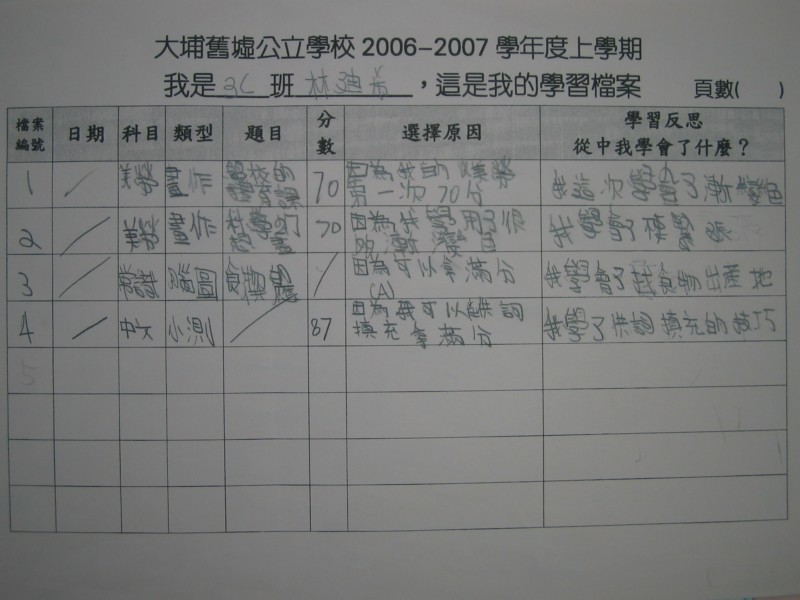 大埔舊墟公立學校 2006-2007 學年度上學期
我是 3C 班 林迪 ，這是我的學習檔案 頁數( )
檔案編號 日期 科目 類型 題目 分數 選擇原因 學習反思 從中我學會了什麼？
1 / 美勞 畫作 學校的 課 70 因為我的美勞第一次70分 我這次學會了漸變色
2 / 美勞 畫作 的畫 70 因為我 用了很 漸變色 我學會了
3 / 常識 腦圖 食物的 / 因為可以拿滿分(A) 我學會了 食物出產地
4 / 中文 小測 / 87 因為我可以 供詞填充拿滿分 我學了供詞填充的技巧
5